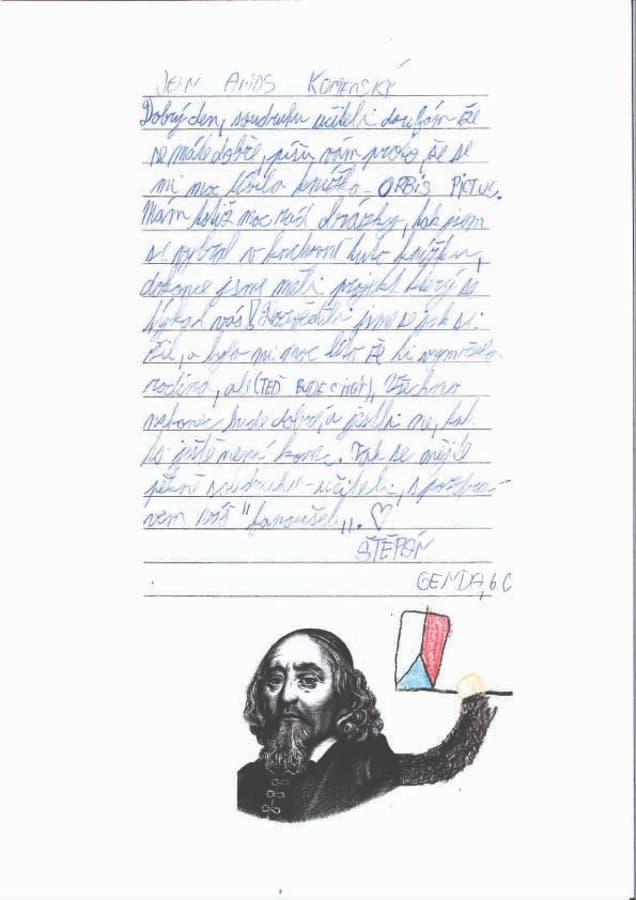 JEN AMOS KOMENSKÝ
Dobrý den, soudruhu učiteli doufám že
se máte dobře, píšu vám proto, že se
mi moc líbila knížka - ORBIS PICTUS.
Mám totiž moc rád obrázky, tak jsem
si vybral v knihovně tuto knížku,
dokonce jsme měli projekt který se
týkal vás! Dozvěděli jsme se jak si
žil, a bylo mi moc líto že ti vymřela
rodina, ale (TEĎ BUDE CITÁT), Všechno
nakonec bude dobré, a jestli ne, tak
to ještě není konec. Tak se mějte
pěkně soudruhu - učiteli, s pozdra-
vem váš "fanoušek". ♡
ŠTĚPÁN
GENDA, 6.C